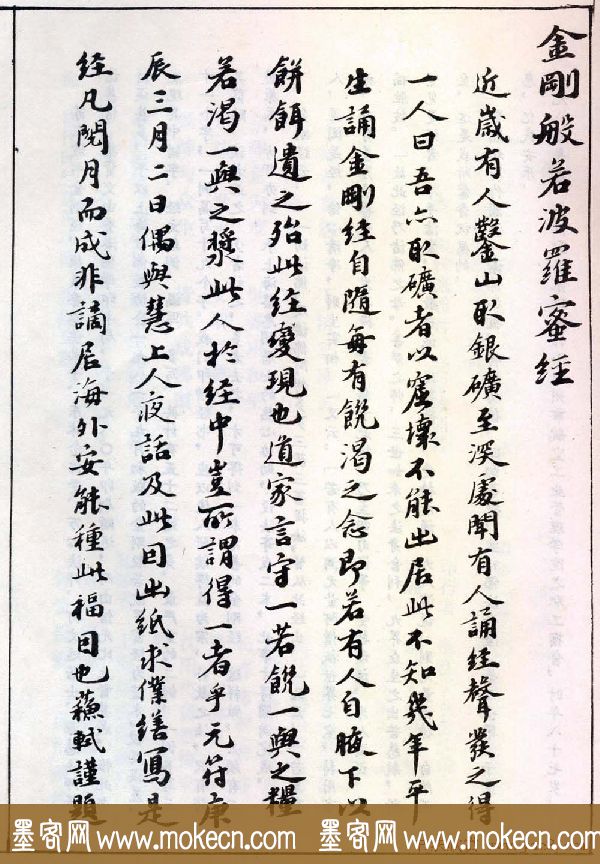 金剛般若波羅蜜經
近歲有人鑿山取銀礦至深處聞有人誦经聲發之得
一人曰吾六取礦者以窟壞不能出居此不知幾年平
生誦金剛经自隨每有飢渴之念即若有人自腋下以
餅餌遺之殆此经變現也道家言守一若飢一與之糧
若渴一與之漿此人於经中豈所謂得一者乎元符庚
辰三月二日偶與慧上人夜話及此因出紙求僕繕寫是
经凡閱月而成非謫居海外安能種此福因也蘇軾謹題
墨客网 www.mokecn.com 墨客网 www.mokecn.com